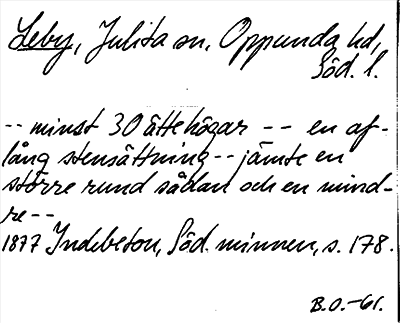 Leby, Julita sn, Oppunda hd,
Söd. l.
-- minst 30 ättehögar -- en af-
lång stensättning -- jämte en
större rund sådan och en mind-
re --
1877 Indebetou, Söd. minnen, s. 178.
B.O.-61.